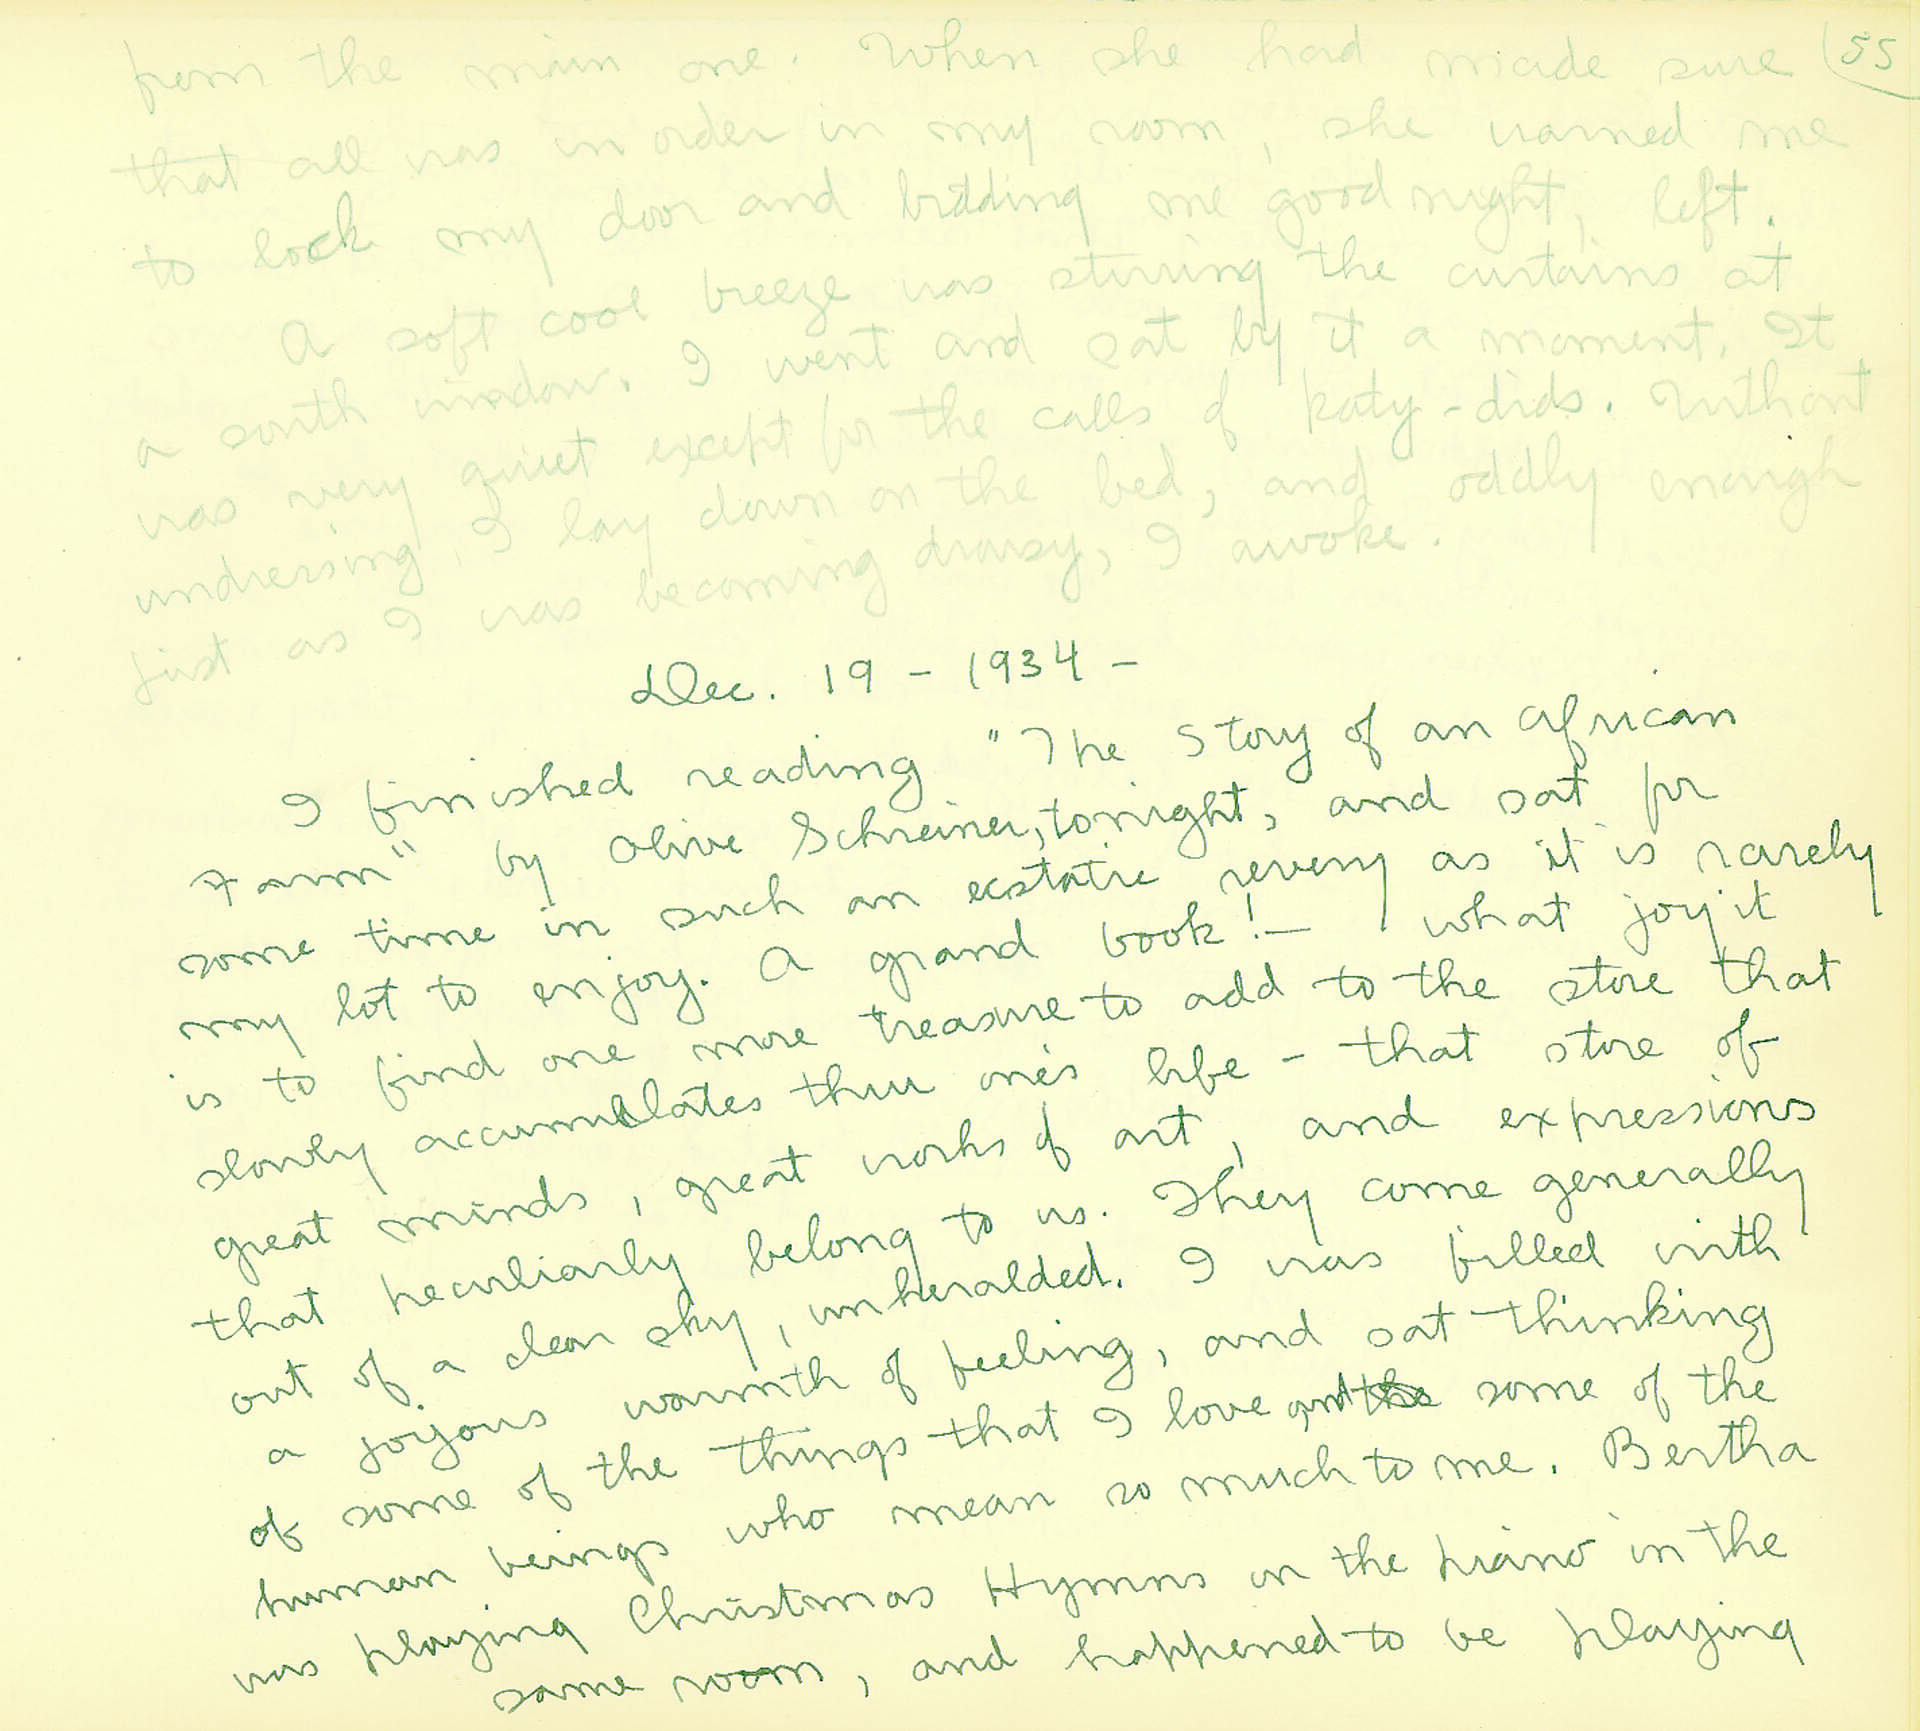 55
from the main one. When she had made sure
that all was in order in my room, she warned me
to lock my door and bidding me good night, left.
A soft cool breeze was stirring the curtains at
a south window. I went and sat by it a moment. It
was very quiet except for the calls of katy-dids. Without
undressing, I lay down on the bed, and oddly enough
just as I was becoming drowsy, I awoke.
Dec. 19 - 1934 -
I finished reading "The Story of an African
Farm" by Olive Schreiner, tonight, and sat for
some time in such an ecstatic revery as it is rarely
my lot to enjoy. A grand book! - what joy it
is to find one more treasure to add to the store that
slowly accumulates thru one's life - that store of
great minds, great works of art, and expressions
that peculiarly belong to us. They come generally
out of a clear sky, unheralded. I was filled with
a joyous warmth of feeling, and sat thinking
of some of the things that I love and some of the
human beings who mean so much to me. Bertha
was playing Christmas Hymns on the piano in the
same room, and happened to be playing